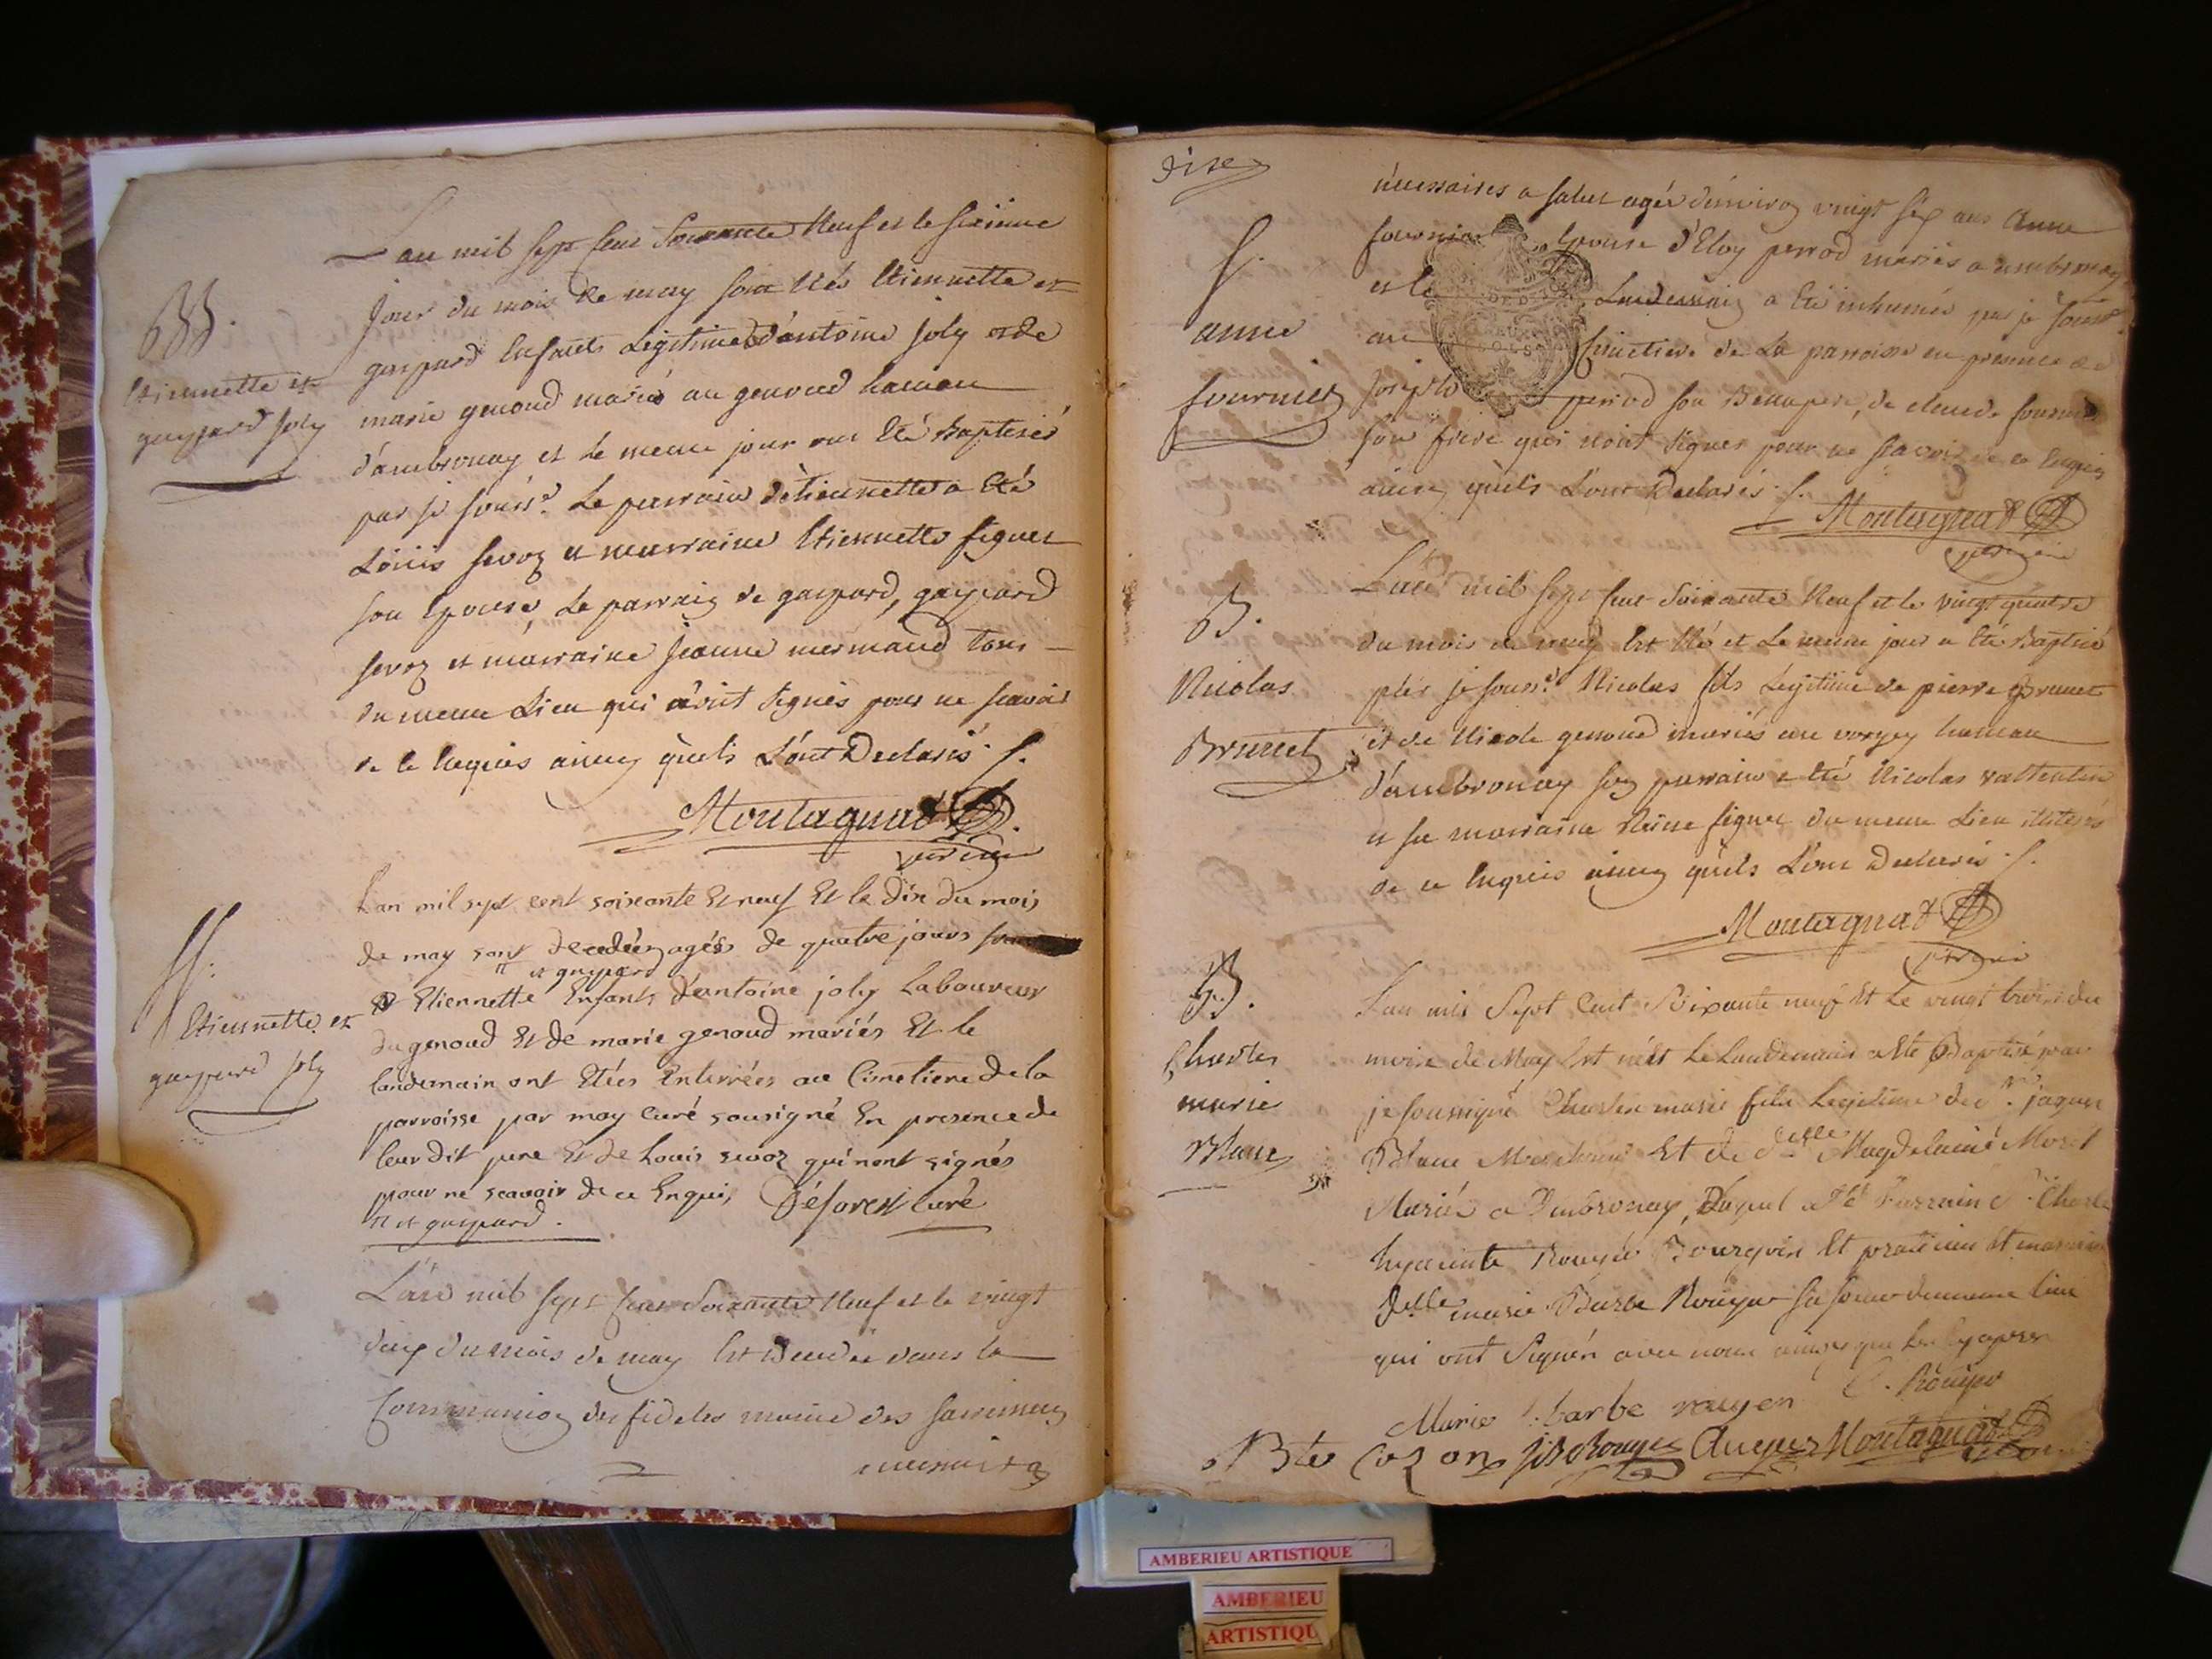 BB.
Etiennette et
gaspard joly
L'an mil sept cent soixante Neuf et le sixiéme
jour du mois de may sont Nés Etiennette et
gaspard Enfants Légitimes d'antoine joly et de
marie genoud mariés au genoud hameau
d'ambronay et le meme jour ont été Baptisés
par je souss.é Le parrain d'etiennette a été
Loüis sevoz et marraine Etiennette figuet
son Epouse, Le parraig de gaspard, gaspard
sevoz et marraine jeanne mermand tous
du meme Lieu qui n'ont signés pour ne scavoir
de ce Enquis ainsy qu'els L'ont Declarés
Montagnat
vicaire
SS.
Etiennette et
gaspard joly
L'an mil sept cent soixante Et neuf Et le dix du mois
de may sont decedées agées de quatre jours
et gaspard
Etiennette Enfants d'antoine joly Laboureur
du genoud Et de marie genoud mariés Et le
landemain ont Etées Enterrées au Cimetiere de la
parroisse par moy Curé sousigné En presence de
leur dit pere Et de Louis sevoz qui n'ont signés
pour ne scavoir de ce Enquis, Déforest Curé
et gaspard.
L'an mil sept cent soixante Neuf et le vingt
du mois de may Est decedée dans la
Communion des fideles munie des sacremens
necessaires
dixe
S.
anne
fournier
nécessaires a salut agée d'environ vingt six ans Anne
fournier Epouse d'Eloy perrod mariés a ambronay
et le Landemaig a été inhumée par je souss.é
au cimetiere de La parroisse en presence de
joseph perrod son Beaupere, de claude fournier
son frere qui n'ont signés pour ne scavoir de ce Enquis
ainsy qu'els L'ont Declarés
Montagnat
vicaire
B.
Nicolas
Brunet
L'an mil sept cent soixante Neuf et le vingt quatre
du mois de may Est Né et Le meme jour a été Baptisé
par je souss.é Nicolas fils Légitime de pierre Brunet
et de Nicole genoud mariés au vorgey hameau
d'ambronay son parrain a été Nicolas vallentin
et sa marraine Reine figuet du meme Lieu illiterés
de ce Enquis ainsy qu'els L'ont Declarés
Montagnat
vicaire
B.
Charles
marie
Blanc
L'an mil Sept Cent Soixante neuf Et Le vingt trois du
mois de May Est né et Le Landemain a Eté Baptisé par
je soussigné Charles marie fils Legitime de S.r jaques
Blanc Marchand Et de d.elle Magdelaine Moret
Mariés a Ambronay, Duquel a Eté Parrain S.r Charle
hyacinte Rouyer Bourgoin Et praticien Et marraine
d.elle marie Barbe Rouyer sa soeur du meme lieu
qui ont Signés avec nous ainsy que Les
C. Rouyer
Marie barbe rouyer
Bte Cozon JB Rouyer Auger Montagnat
vicaire
AMBERIEU ARTISTIQUE
AMBERIEU
ARTISTIQU